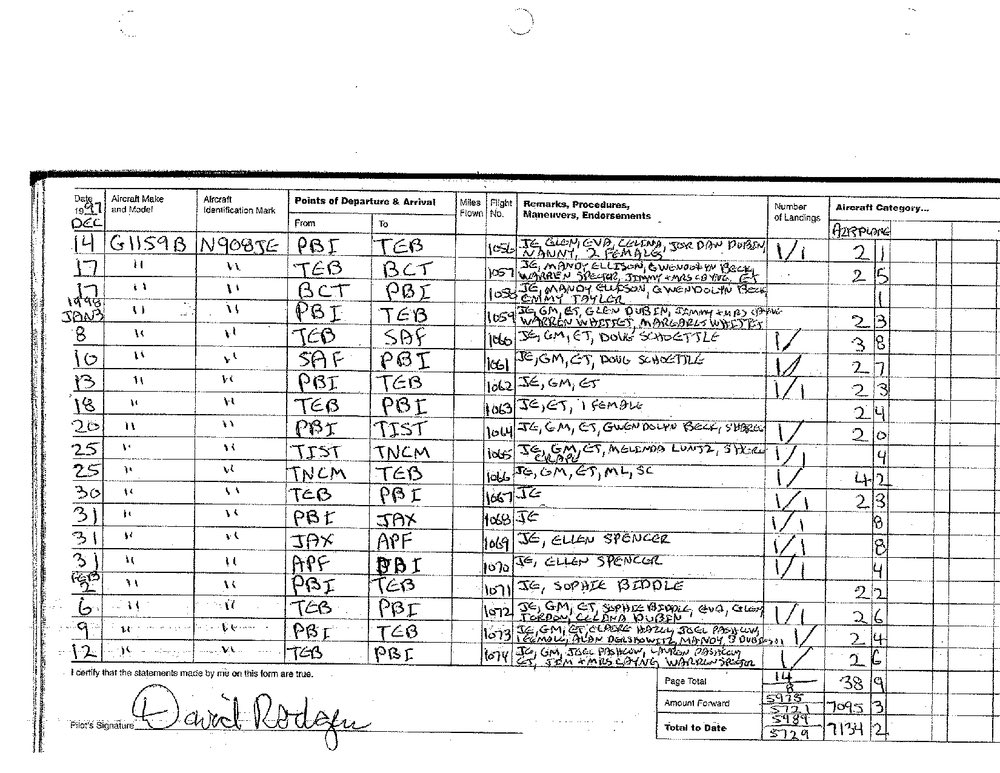 Date 1997 Aircraft Make and Model Aircraft Identification Mark Points of Departure & Arrival Miles Flown Flight No. Remarks, Procedures, Maneuvers, Endorsements Number of Landings Aircraft Category...
DEC From To AIRPLANE
14 G1159B N908JE PBI TEB 1056 JE, GLEN, EVA, CELINA, JORDAN DUBIN, NANNY, 2 FEMALES 1/1 2 1
17 " " TEB BCT 1057 JE, MANDY ELLISON, GWENDOLYN BECK, WARREN SPECTOR, JIMMY + MRS CAYNE, ET 2 5
17 " " BCT PBI 1058 JE, MANDY ELLISON, GWENDOLYN BECK, EMMY TAYLER 1
1998 JAN 3 " " PBI TEB 1059 JE, GM, ET, GLEN DUBIN, JIMMY + MRS CAYNE 2 3
8 " " TEB SAF 1060 JE, GM, ET, DOUG SCHOETTLE 1/ 3 8
10 " " SAF PBI 1061 JE, GM, ET, DOUG SCHOETTLE 1/ 2 7
13 " " PBI TEB 1062 JE, GM, ET 1/1 2 3
18 " " TEB PBI 1063 JE, ET, 1 FEMALE 2 4
20 " " PBI TIST 1064 JE, GM, ET, GWENDOLYN BECK, 1/ 2 0
25 " " TIST TNCM 1065 JE, GM, ET, MELINDA LUNTZ, 1/1 4
25 " " TNCM TEB 1066 JE, GM, ET, ML, SC 1/ 4 2
30 " " TEB PBI 1067 JE 1/1 2 3
31 " " PBI JAX 1068 JE 1/1 8
31 " " JAX APF 1069 JE, ELLEN SPENCER 1/1 8
31 " " APF PBI 1070 JE, ELLEN SPENCER 1/1 4
FEB 2 " " PBI TEB 1071 JE, SOPHIE BIDDLE 2 2
6 " " TEB PBI 1072 JE, GM, ET, SOPHIE BIDDLE, EVA, GLEN, JORDON, CELINA DUBIN 1/1 2 6
9 " " PBI TEB 1073 JE, GM, ET, JOEL PASHCOW, 1 FEMALE, ALAN DERSHOWITZ, MANDY, 1/ 2 4
12 " " TEB PBI 1074 JE, GM, JOEL PASHCOW, PASHCOW, ET, JIM + MRS CAYNE, WARREN SPECTOR 1/ 2 6
I certify that the statements made by me on this form are true. Page Total 14 8 38 9
Amount Forward 5975 5721 7095 3
Pilot's Signature David Rodgers Total to Date 5989 5729 7134 2